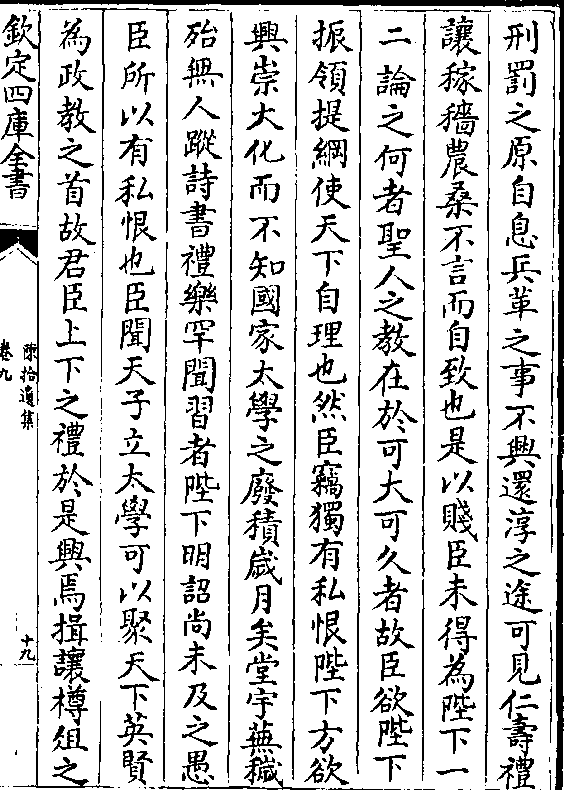 刑罰之原自息兵革之事不興還淳之途可見仁壽禮
讓稼穡農桑不言而自致也是以賤臣未得為陛下一
二論之何者聖人之教在於可大可久者故臣欲陛下
振領提綱使天下自理也然臣竊獨有私恨陛下方欲
興崇大化而不知國家太學之廢積歲月矣堂宇蕪穢
殆無人蹤詩書禮樂罕聞習者陛下明詔尚未及之愚
臣所以有私恨也臣聞天子立太學可以聚天下英賢
為政教之首故君臣上下之禮於是興焉揖讓樽俎之
欽定四庫全書
陳拾遺集
卷九
十九